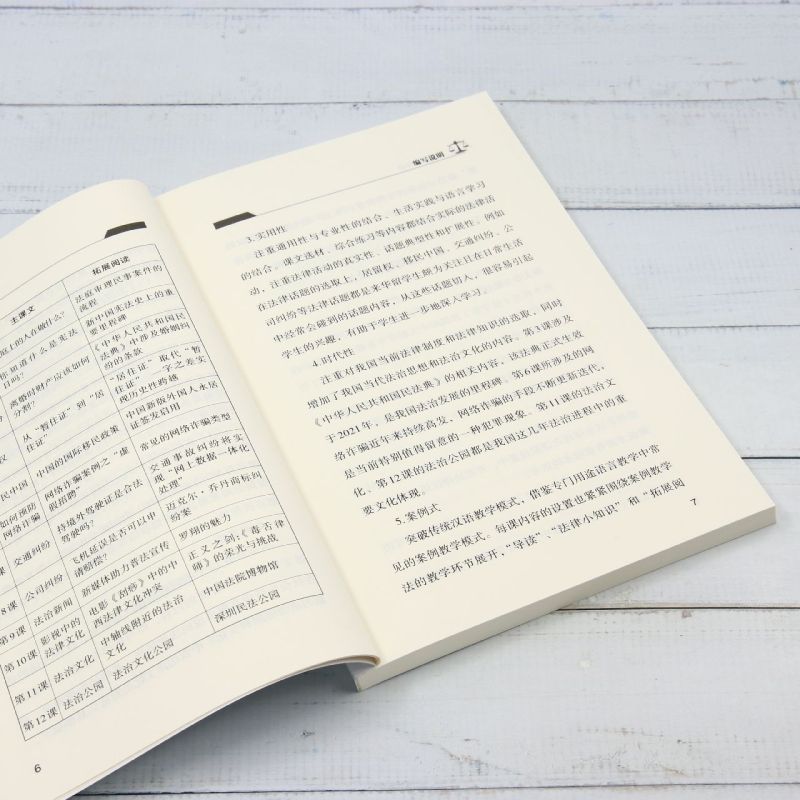 主课文
拓展阅读
庭上的人在做什么?
法庭审理民事案件的
流程
你知道什么是宪法
日吗?
新中国宪法史上的重
要里程碑
离婚时财产应该如何
分割?
《中华人民共和国民
法典》中涉及婚姻纠
纷的条款
从“暂住证”到“居
住证”
“居住证”取代“暂
住证” 一字之差实
现历史性跨越
民中国
中国的国际移民政策
中国新版外国人永居
证签发启用
如何预防
网络诈骗
网络诈骗案例之“虚
假招聘”
常见的网络诈骗类型
课
交通纠纷
持境外驾驶证是合法
驾驶吗?
交通事故纠纷将实
现“网上数据一体化
处理”
8课
公司纠纷
飞机延误是否可以申
请赔偿?
迈克尔·乔丹商标纠
纷案
第9课
法治新闻
新媒体助力普法宣传
罗翔的魅力
第10课
影视中的
法律文化
电影《刮痧》中的中
西法律文化冲突
正义之剑:《毒舌律
师》的荣光与挑战
第11课
法治文化
中轴线附近的法治
文化
中国法院博物馆
第12课
法治公园
法治文化公园
深圳民法公园
6
编写说明
3. 实用性
注重通用性与专业性的结合、生活实践与语言学习
的结合。课文选材、综合练习等内容都结合实际的法律活
动,注重法律活动的真实性、话题典型性和扩展性。例如
在法律话题的选取上,居留权、移民中国、交通纠纷、公
司纠纷等法律话题都是来华留学生颇为关注且在日常生活
中经常会碰到的话题内容,从这些话题切入,很容易引起
学生的兴趣,有助于学生进一步地深入学习。
4. 时代性
注重对我国当前法律制度和法律知识的选取,同时
增加了我国当代法治思想和法治文化的内容。第1课涉及
《中华人民共和国民法典》的相关内容,该法典正式生效
于2021年,是我国法治发展的里程碑。第6课所涉及的网
络诈骗近年来持续高发,网络诈骗的手段不断更新迭代,
是当前特别值得留意的一种犯罪现象。第11课的法治文
化、第12课的法治公园都是我国这几年法治进程中的重
要文化体现。
5. 案例式
突破传统汉语教学模式,借鉴专门用途语言教学中常
见的案例教学模式。每课内容的设置也紧紧围绕案例教学
法的教学环节展开,“导读”、“法律小知识”和“拓展阅
7